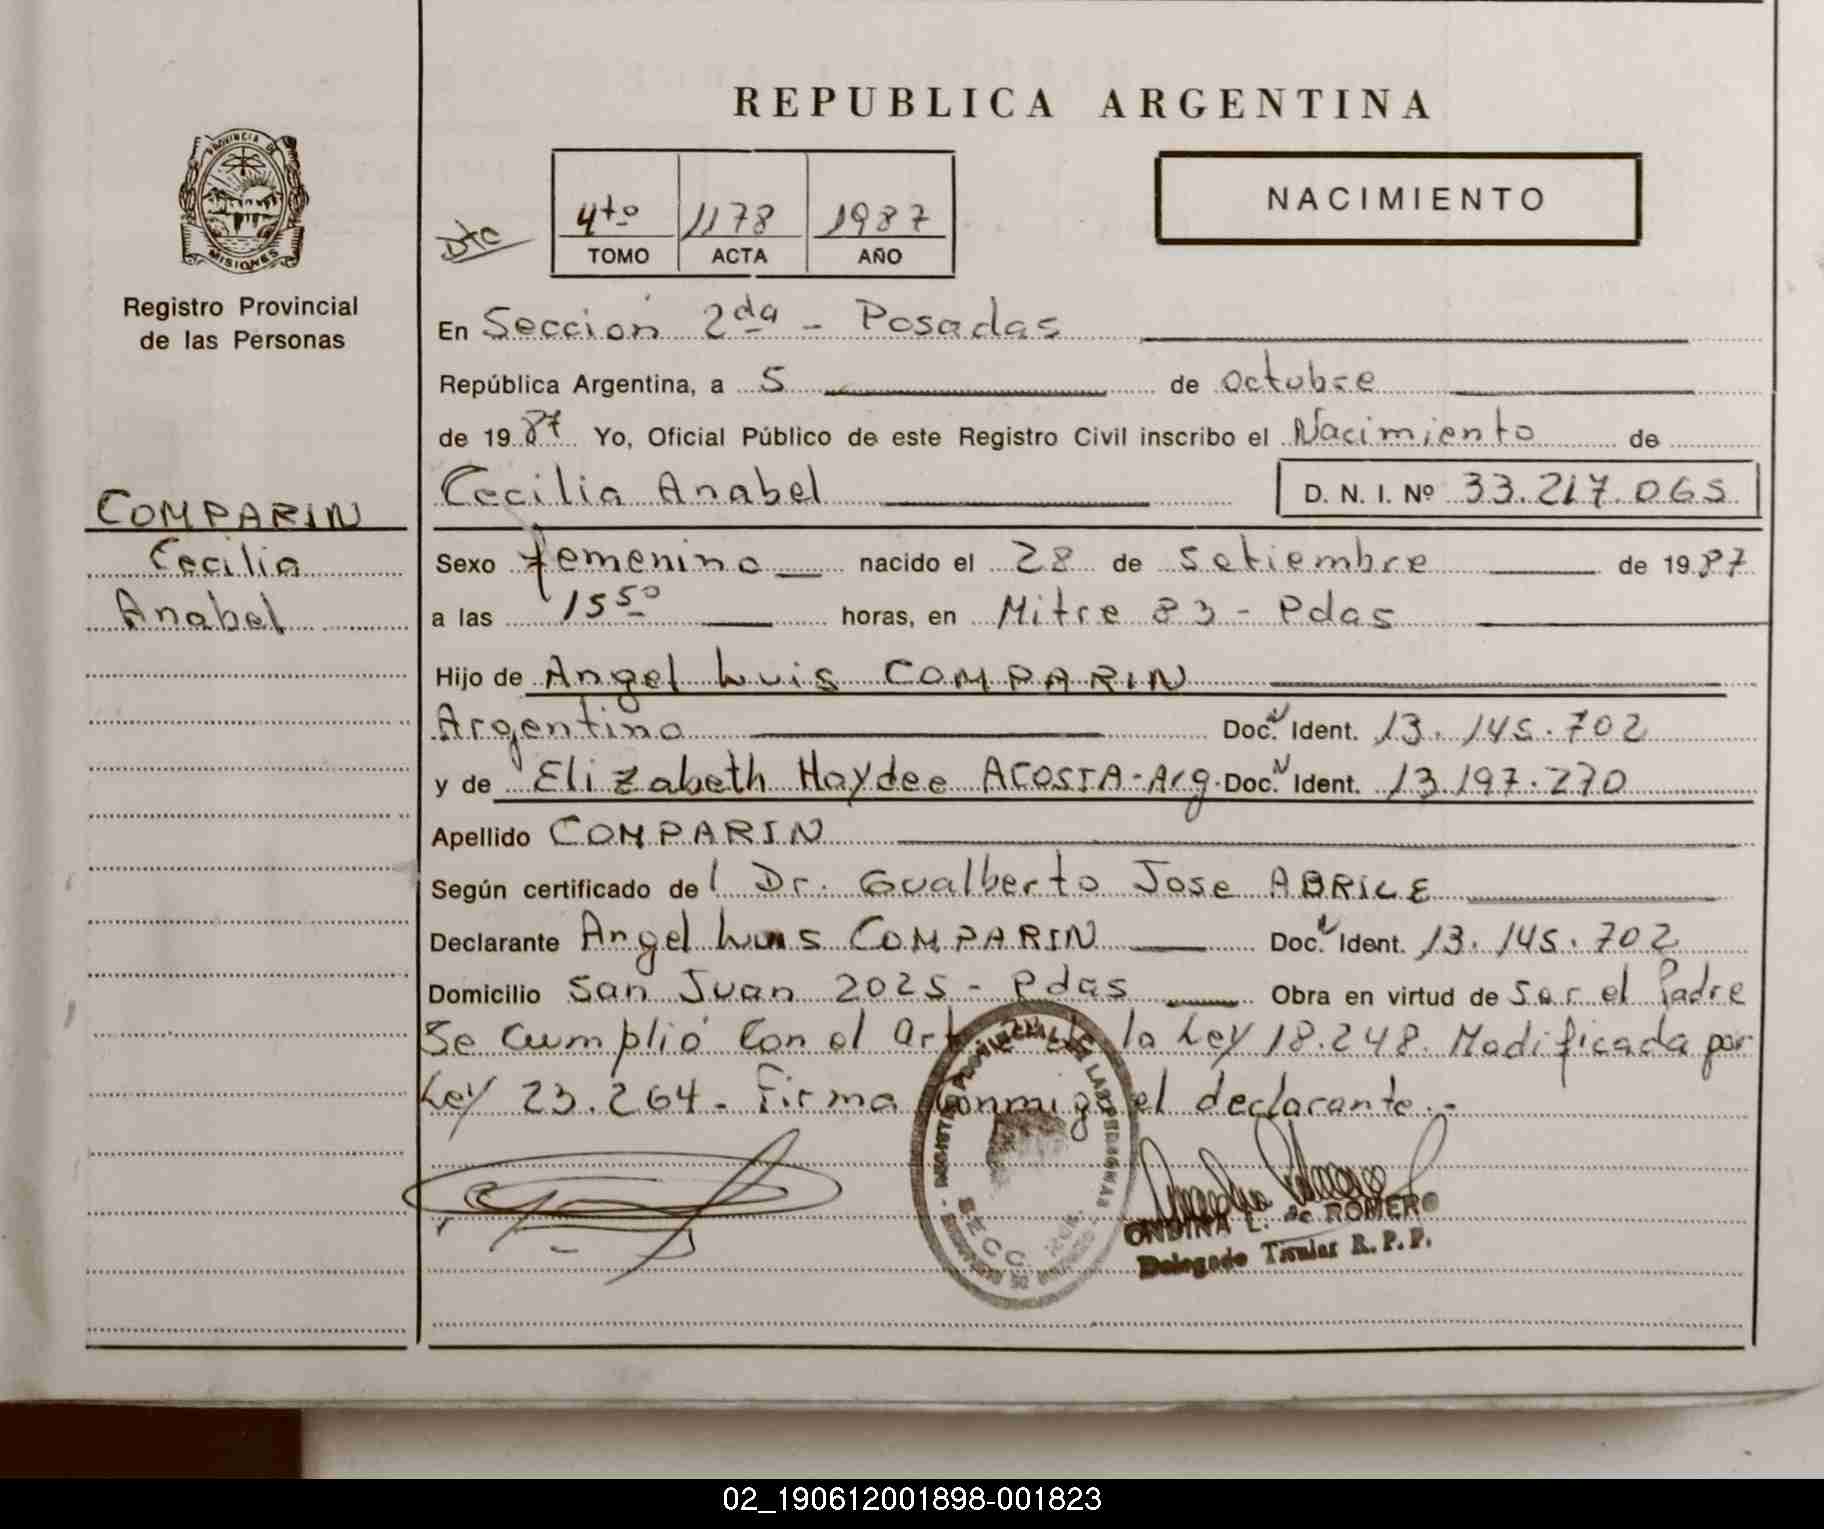 REPUBLICA ARGENTINA
PROVINCIA DE
MISIONES
Registro Provincial
de las Personas
Dto
4to 1178 1987
TOMO ACTA AÑO
NACIMIENTO
COMPARIN
Cecilia
Anabel
En Sección 2da - Posadas
República Argentina, a 5 de octubre
de 1987 Yo, Oficial Público de este Registro Civil inscribo el Nacimiento de
Cecilia Anabel D. N. I. Nº 33.217.065
Sexo femenino nacido el 28 de setiembre de 1987
a las 15 50 horas, en Mitre 83 - Pdas
Hijo de Angel Luis COMPARIN
Argentino Doc. Ident. 13.145.702
y de Elizabeth Haydee ACOSTA - Arg. Doc. Ident. 13.197.270
Apellido COMPARIN
Según certificado del Dr. Gualberto Jose ABRILE
Declarante Angel Luis COMPARIN Doc. Ident. 13.145.702
Domicilio San Juan 2025 - Pdas Obra en virtud de Ser el Padre
Se cumplió con el art de la Ley 18.248. Modificada por
Ley 23.264 - Firma conmigo el declarante.-
ONDINA L. de ROMERO
Delegado Titular R. P. P.
02_190612001898-001823